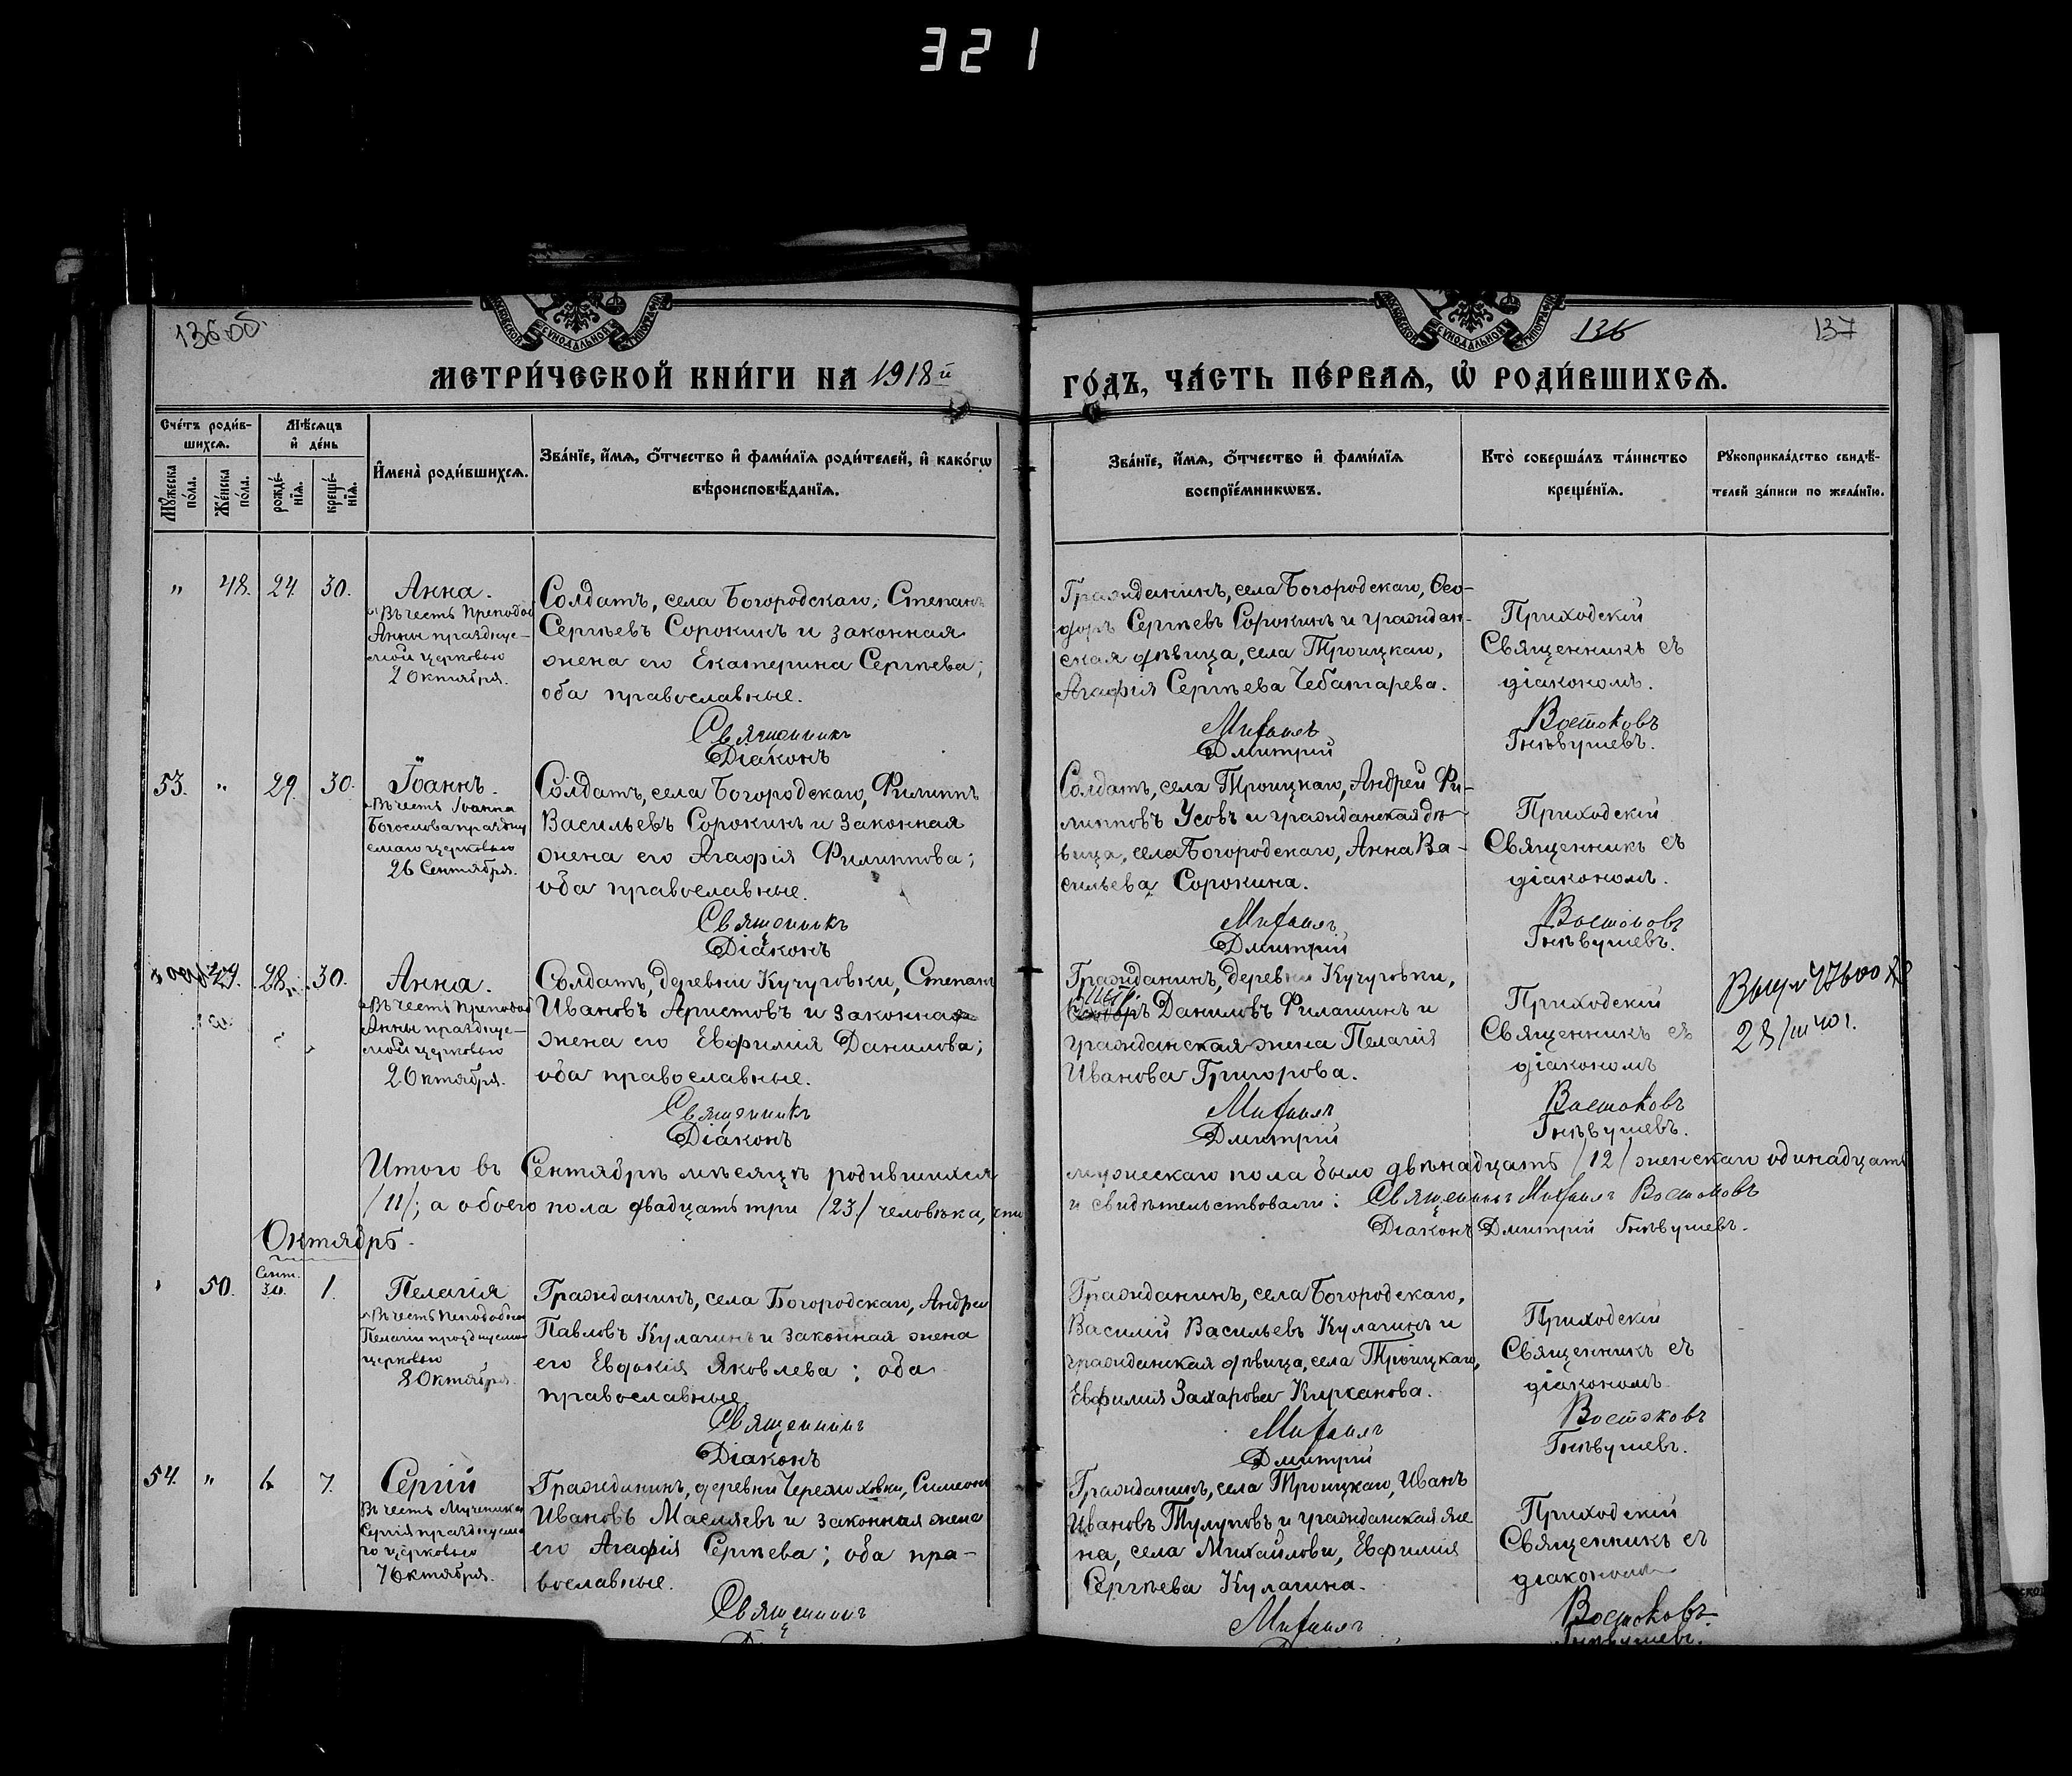 321
136 об.
136
137
МОСКОВСКОЙ СѴНОДАЛЬНОЙ ТИПОГРАФІИ
СѴНОДАЛЬНОЙ ТИПОГРАФІИ
МЕТРИ́ЧЕСКОЙ КНИ́ГИ НА 1918й
ГО́ДЪ, ЧА́СТЬ ПЕ́РВАЯ, Ѡ҆ РОДИ́ВШИХСѦ.
Сче́тъ роди́в-
шихсѧ.
Мꙋжеска по́ла.
Же́нска по́ла.
Мѣ́сѧцъ
и҆ де́нь
рожде́-
нїѧ.
креще́-
нїѧ.
И҆мена̀ роди́вшихсѧ.
Зва́нїе, и҆́мѧ, ѻ҆́тчество и҆ фами́лїѧ роди́телей, и҆ како́гѡ
вѣроисповѣ́данїѧ.
Зва́нїе, и҆́мѧ, ѻ҆́тчество и҆ фами́лїѧ
воспрїе́мникѡвъ.
Кто̀ соверша́лъ та́инство
креще́нїѧ.
Рꙋкоприкла́дство свидѣ́-
телей за́писи по жела́нїю.
" 48. 24. 30.
Анна.
Въ честь Преподоб
Анны праздную-
мой церковью
2 Октября.
Солдатъ, села Богородскаго, Степанъ
Сергѣевъ Сорокинъ и законная
жена его Екатерина Сергѣева;
оба православные.
Священникъ
Діаконъ
Гражданинъ, села Богородскаго, Ѳео-
доръ Сергѣевъ Сорокинъ и граждан-
ская дѣвица, села Троицкаго,
Агафія Сергѣева Чебатарева.
Михаилъ
Дмитрій
Приходскій
Священникъ съ
діакономъ.
Востоковъ
Гнѣвушевъ.
53. " 29. 30.
Іоаннъ.
Въ честь Іоанна
Богослова праздну
емаго церковью
26 Сентября.
Солдатъ, села Богородскаго, Филиппъ
Васильевъ Сорокинъ и законная
жена его Агафія Филиппова;
оба православные.
Священникъ
Діаконъ
Солдатъ, села Троицкаго, Андрей Фи-
липповъ Усовъ и гражданская дѣ-
вица, села Богородскаго, Анна Ва-
сильева Сорокина.
Михаилъ
Дмитрій
Приходскій
Священникъ съ
діакономъ.
Востоковъ
Гнѣвушевъ.
49. 28. 30.
Анна.
Въ честь Преподоб
Анны праздную-
мой церковью
2 Октября.
Солдатъ, деревни Кучуговки, Степанъ
Ивановъ Аристовъ и законная
жена его Евфимія Данилова;
оба православные.
Священникъ
Діаконъ
Гражданинъ, деревни Кучуговки,
Даниловъ Филашинъ и
гражданская жена Пелагія
Иванова Григорова.
Михаилъ
Дмитрій
Приходскій
Священникъ съ
діакономъ
Востоковъ
Гнѣвушевъ.
28/III 40 г.
Итого въ Сентябрѣ мѣсяцѣ родившихся
мужескаго пола было двѣнадцать /12/ женскаго одинадцать
/11/; а обоего пола двадцать три /23/ человѣка,
и свидѣтельствовали: Священникъ Михаилъ Востоковъ
Діаконъ Дмитрій Гнѣвушевъ.
Октябрь.
50. Сент. 30. 1.
Пелагія
Въ честь Преподобной
Пелагіи празднуемой
церковью
8 Октября.
Гражданинъ, села Богородскаго, Андрей
Павловъ Кулагинъ и законная жена
его Евдокія Яковлева; оба
православные
Священникъ
Діаконъ
Гражданинъ, села Богородскаго,
Василій Васильевъ Кулагинъ и
гражданская дѣвица, села Троицкаго,
Евфимія Захарова Кирсанова.
Михаилъ
Дмитрій
Приходскій
Священникъ съ
діакономъ
Востоковъ
Гнѣвушевъ.
54. " 6. 7.
Сергій
Въ честь Мученика
Сергія празднуема
го церковью
7 Октября.
Гражданинъ, деревни Черемховки, Симеонъ
Ивановъ Масляевъ и законная жена
его Агафія Сергѣева; оба пра-
вославные.
Священникъ
Гражданинъ, села Троицкаго, Иванъ
Ивановъ Тулуповъ и гражданская же
на, села Михайловки, Евфимія
Сергѣева Кулагина.
Михаилъ
Приходскій
Священникъ съ
діакономъ
Востоковъ
Гнѣвушевъ.